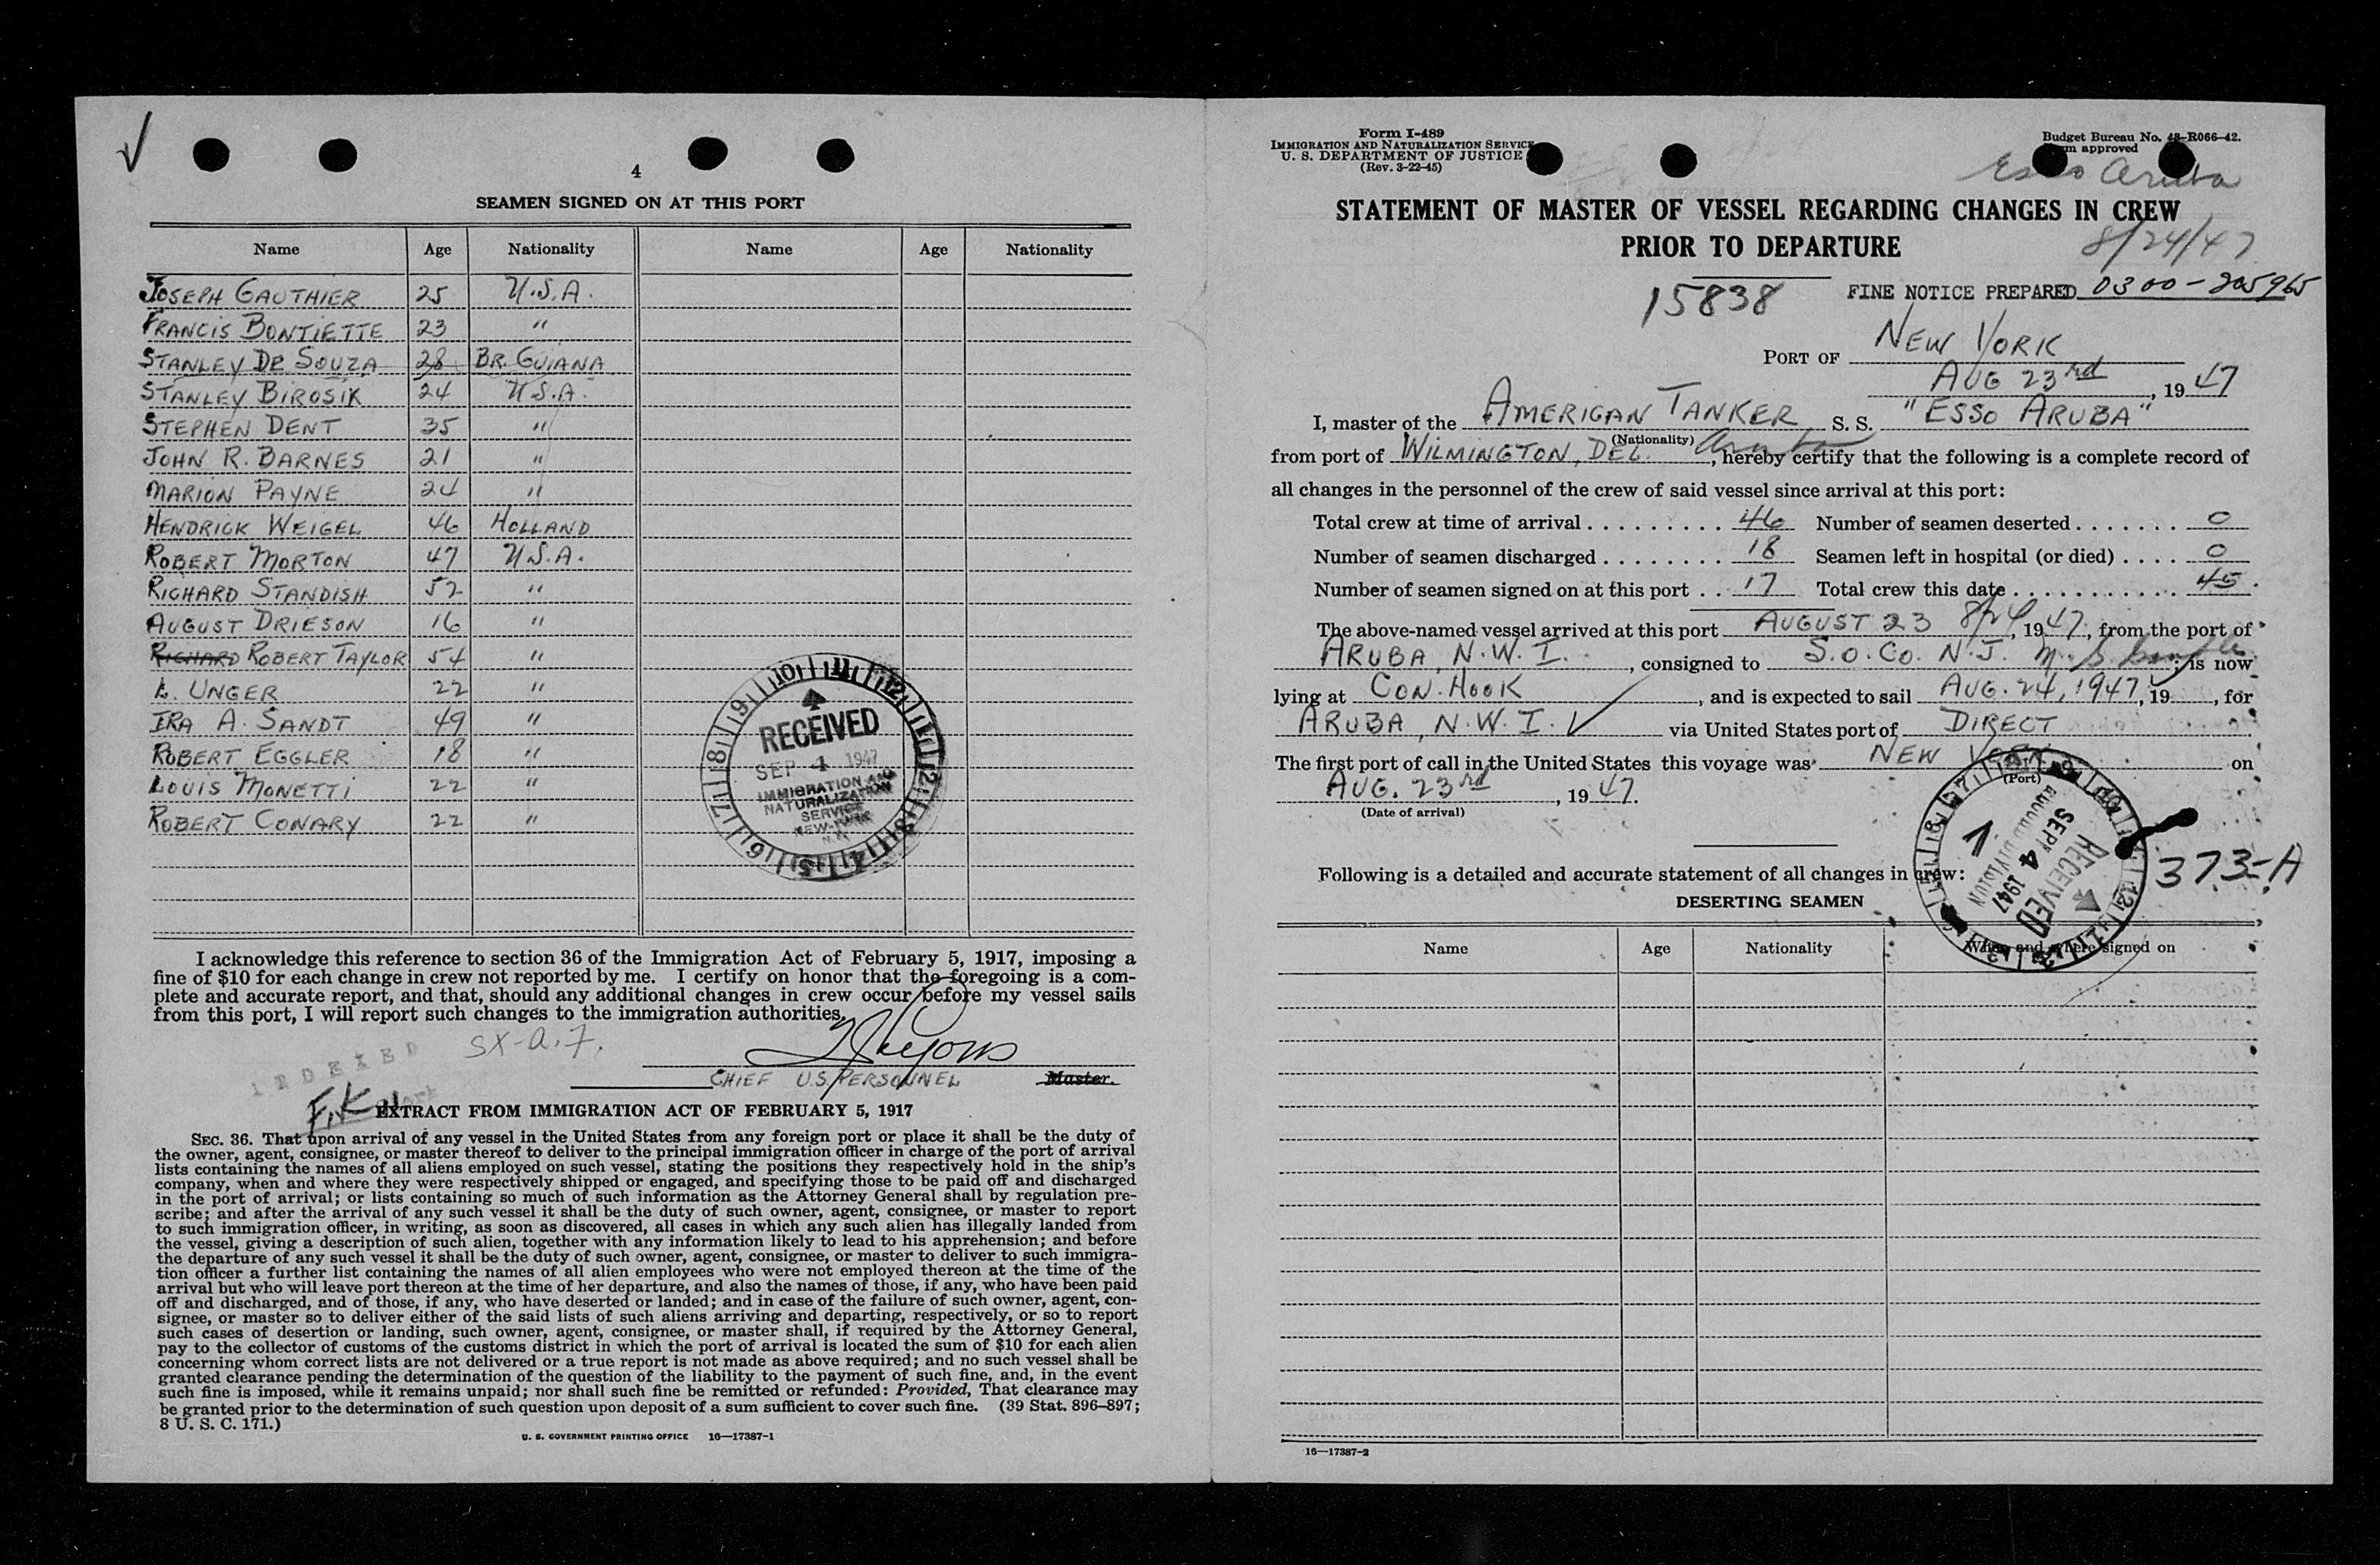 4
SEAMEN SIGNED ON AT THIS PORT
Name Age Nationality Name Age Nationality
JOSEPH GAUTHIER 25 U.S.A.
FRANCIS BONTIETTE 23 "
STANLEY DE SOUZA 28 BR. GUIANA
STANLEY BIROSIK 24 U.S.A.
STEPHEN DENT 35 "
JOHN R. BARNES 21 "
MARION PAYNE 24 "
HENDRICK WEIGEL 46 HOLLAND
ROBERT MORTON 47 U.S.A.
RICHARD STANDISH 52 "
AUGUST DRIESON 16 "
RICHARD ROBERT TAYLOR 54 "
L. UNGER 22 "
IRA A. SANDT 49 "
ROBERT EGGLER 18 "
LOUIS MONETTI 22 "
ROBERT CONARY 22 "
RECEIVED
SEP 4 1947
IMMIGRATION AND
NATURALIZATION
SERVICE
NEW YORK
N.Y.
I acknowledge this reference to section 36 of the Immigration Act of February 5, 1917, imposing a
fine of $10 for each change in crew not reported by me. I certify on honor that the foregoing is a com-
plete and accurate report, and that, should any additional changes in crew occur before my vessel sails
from this port, I will report such changes to the immigration authorities.
SX-a.7.
INDEXED
CHIEF U.S. PERSONNEL Master.
F.K
EXTRACT FROM IMMIGRATION ACT OF FEBRUARY 5, 1917
SEC. 36. That upon arrival of any vessel in the United States from any foreign port or place it shall be the duty of
the owner, agent, consignee, or master thereof to deliver to the principal immigration officer in charge of the port of arrival
lists containing the names of all aliens employed on such vessel, stating the positions they respectively hold in the ship's
company, when and where they were respectively shipped or engaged, and specifying those to be paid off and discharged
in the port of arrival; or lists containing so much of such information as the Attorney General shall by regulation pre-
scribe; and after the arrival of any such vessel it shall be the duty of such owner, agent, consignee, or master to report
to such immigration officer, in writing, as soon as discovered, all cases in which any such alien has illegally landed from
the vessel, giving a description of such alien, together with any information likely to lead to his apprehension; and before
the departure of any such vessel it shall be the duty of such owner, agent, consignee, or master to deliver to such immigra-
tion officer a further list containing the names of all alien employees who were not employed thereon at the time of the
arrival but who will leave port thereon at the time of her departure, and also the names of those, if any, who have been paid
off and discharged, and of those, if any, who have deserted or landed; and in case of the failure of such owner, agent, con-
signee, or master so to deliver either of the said lists of such aliens arriving and departing, respectively, or so to report
such cases of desertion or landing, such owner, agent, consignee, or master shall, if required by the Attorney General,
pay to the collector of customs of the customs district in which the port of arrival is located the sum of $10 for each alien
concerning whom correct lists are not delivered or a true report is not made as above required; and no such vessel shall be
granted clearance pending the determination of the question of the liability to the payment of such fine, and, in the event
such fine is imposed, while it remains unpaid; nor shall such fine be remitted or refunded: Provided, That clearance may
be granted prior to the determination of such question upon deposit of a sum sufficient to cover such fine. (39 Stat. 896–897;
8 U. S. C. 171.)
U. S. GOVERNMENT PRINTING OFFICE 16—17387-1
Form I-489
IMMIGRATION AND NATURALIZATION SERVICE
U. S. DEPARTMENT OF JUSTICE
(Rev. 3-22-45)
Budget Bureau No. 43-R066-42.
approved
Esso Aruba
STATEMENT OF MASTER OF VESSEL REGARDING CHANGES IN CREW
PRIOR TO DEPARTURE
8/24/47
15838
FINE NOTICE PREPARED 0300-205965
PORT OF NEW YORK
AUG 23rd, 1947
I, master of the AMERICAN TANKER S. S. "ESSO ARUBA"
(Nationality)
from port of WILMINGTON, DEL. Aruba, hereby certify that the following is a complete record of
all changes in the personnel of the crew of said vessel since arrival at this port:
Total crew at time of arrival 46 Number of seamen deserted 0
Number of seamen discharged 18 Seamen left in hospital (or died) 0
Number of seamen signed on at this port 17 Total crew this date 45.
The above-named vessel arrived at this port AUGUST 23 8/24, 1947, from the port of
ARUBA, N.W.I., consigned to S.O.Co. N.J.; is now
lying at CON. HOOK, and is expected to sail AUG. 24, 1947, 19, for
ARUBA, N.W.I. via United States port of DIRECT
The first port of call in the United States this voyage was NEW YORK on
(Port)
AUG. 23rd, 1947.
(Date of arrival)
RECEIVED
SEP 4 1947
373-A
Following is a detailed and accurate statement of all changes in crew:
DESERTING SEAMEN
Name Age Nationality When and where signed on
16—17387-2